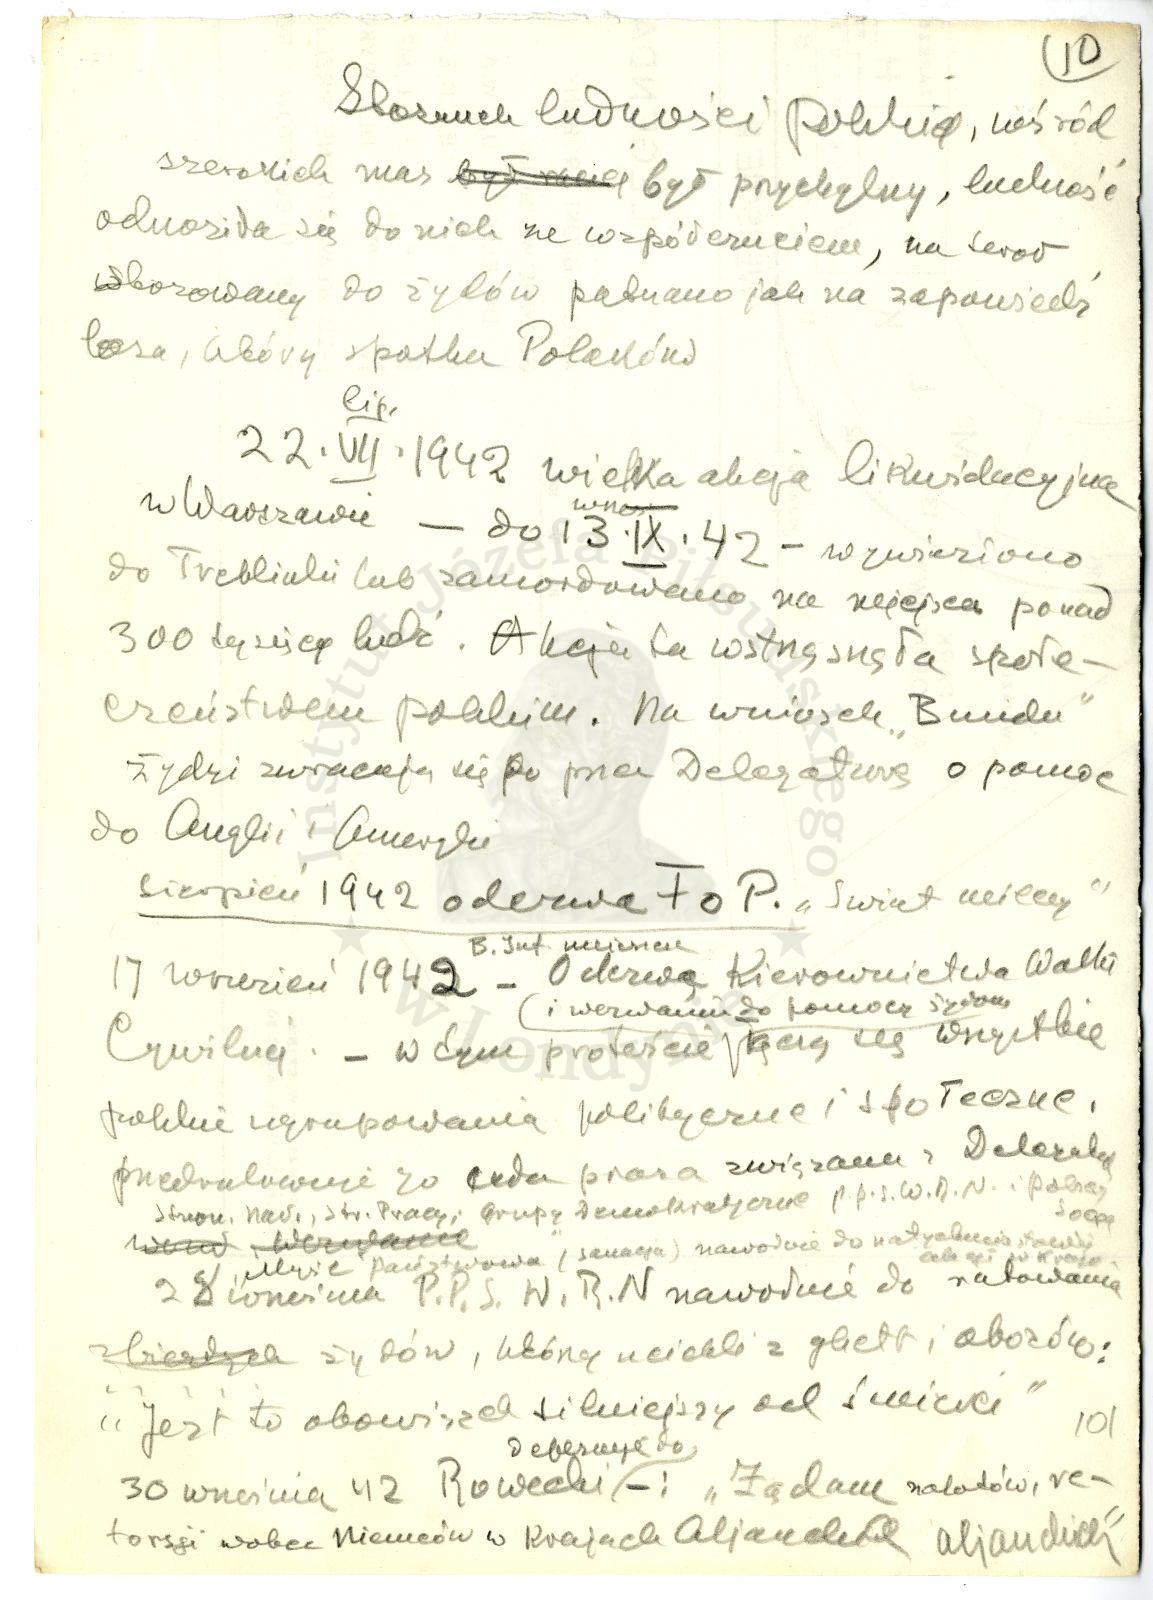 10
Stosunek ludności polskiej, wśród
szerokich mas był przychylny, ludność
odnosiła się do nich ze współczuciem, na teror
stosowany do żydów patrzano jak na zapowiedź
losu, który spotka Polaków
lip.
22.VII.1942 wielka akcja likwidacyjna
w Warszawie — do 13.IX.42 — wywieziono
do Treblinki lub zamordowano na miejscu ponad
300 tysięcy ludzi. Akcja ta wstrząsnęła społe-
czeństwem polskim. Na wniosek „Bundu"
Żydzi zwracają się przez Delegaturę o pomoc
do Anglii i Ameryki
sierpień 1942 odezwa FOP. „Świat milczy"
B. Inf
17 wrzesień 1942 — Odezwa Kierownictwa Walki
(i wezwaniu do pomocy żydom
Cywilnej. — w tym proteście łączą się wszystkie
polskie ugrupowania polityczne i społeczne,
przedrukowuje go cała prasa związana z Delegaturą
Stron. Nar., Str. Pracy, Grupy Demokratyczne P.P.S.W.R.N. i Polscy
Socj.
„Myśl Państwowa" (sanacja) nawołuje do natychmiastowej
akcji w kraju
28 września P.P.S. W.R.N nawołuje do ratowania
żydów, którzy uciekli z ghett i obozów:
„Jest to obowiązek silniejszy od śmierci"
101
Depeszuje do
30 września 42 Rowecki —: „Żądam nalotów, re-
torsji wobec Niemców w Krajach Aljanckich aljanckich"
Instytut Józefa Piłsudskiego
w Londynie